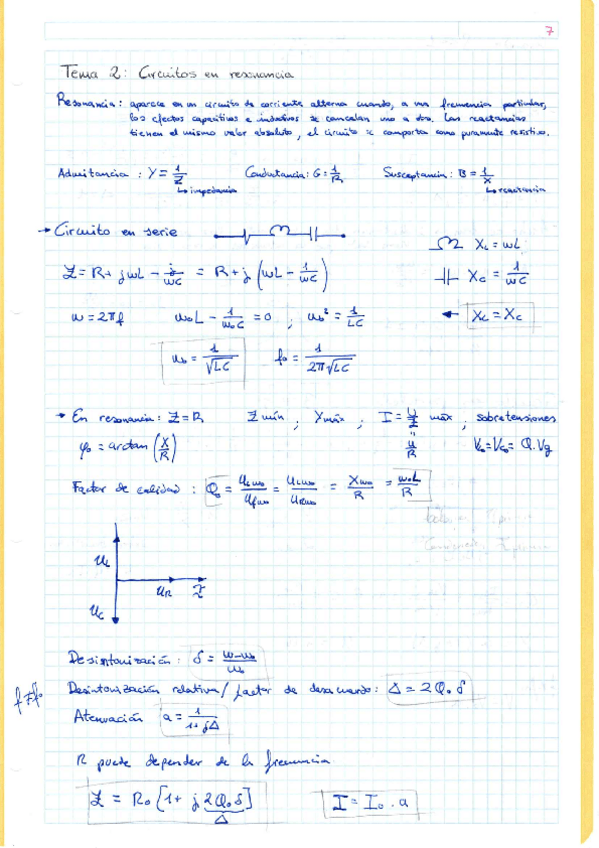 7
Tema 2: Circuitos en resonancia
Resonancia: aparece en un circuito de corriente alterna cuando, a una frecuencia particular,
los efectos capacitivos e inductivos se cancelan uno a otro. Las reactancias
tienen el mismo valor absoluto, el circuito se comporta como puramente resistivo.
Admitancia: Y = 1/Z Conductancia: G = 1/R Susceptancia: B = 1/X
↳ impedancia ↳ reactancia
→ Circuito en serie
X_L = ωL
Z = R + jωL - j/ωC = R + j(ωL - 1/ωC) X_C = 1/ωC
ω = 2πf ω₀L - 1/ω₀C = 0 ; ω₀² = 1/LC ← X_L = X_C
ω₀ = 1/√LC f₀ = 1/2π√LC
→ En resonancia: Z = R Z mín, Y máx, I = U/Z máx, sobretensiones
φ₀ = arctan(X/R) U/R V_L₀ = V_C₀ = Q·Vg
Factor de calidad: Q₀ = = = X_ω₀/R = ω₀L/R
U_L
U_R I
U_C
Desintonización: δ = ω-ω₀/ω₀
f≠f₀ Desintonización relativa/ factor de desacuerdo: Δ = 2Q₀δ
Atenuación a = 1/1+jΔ
R puede depender de la frecuencia.
Z = R₀[1 + j2Q₀δ] I = I₀ · a
Δ